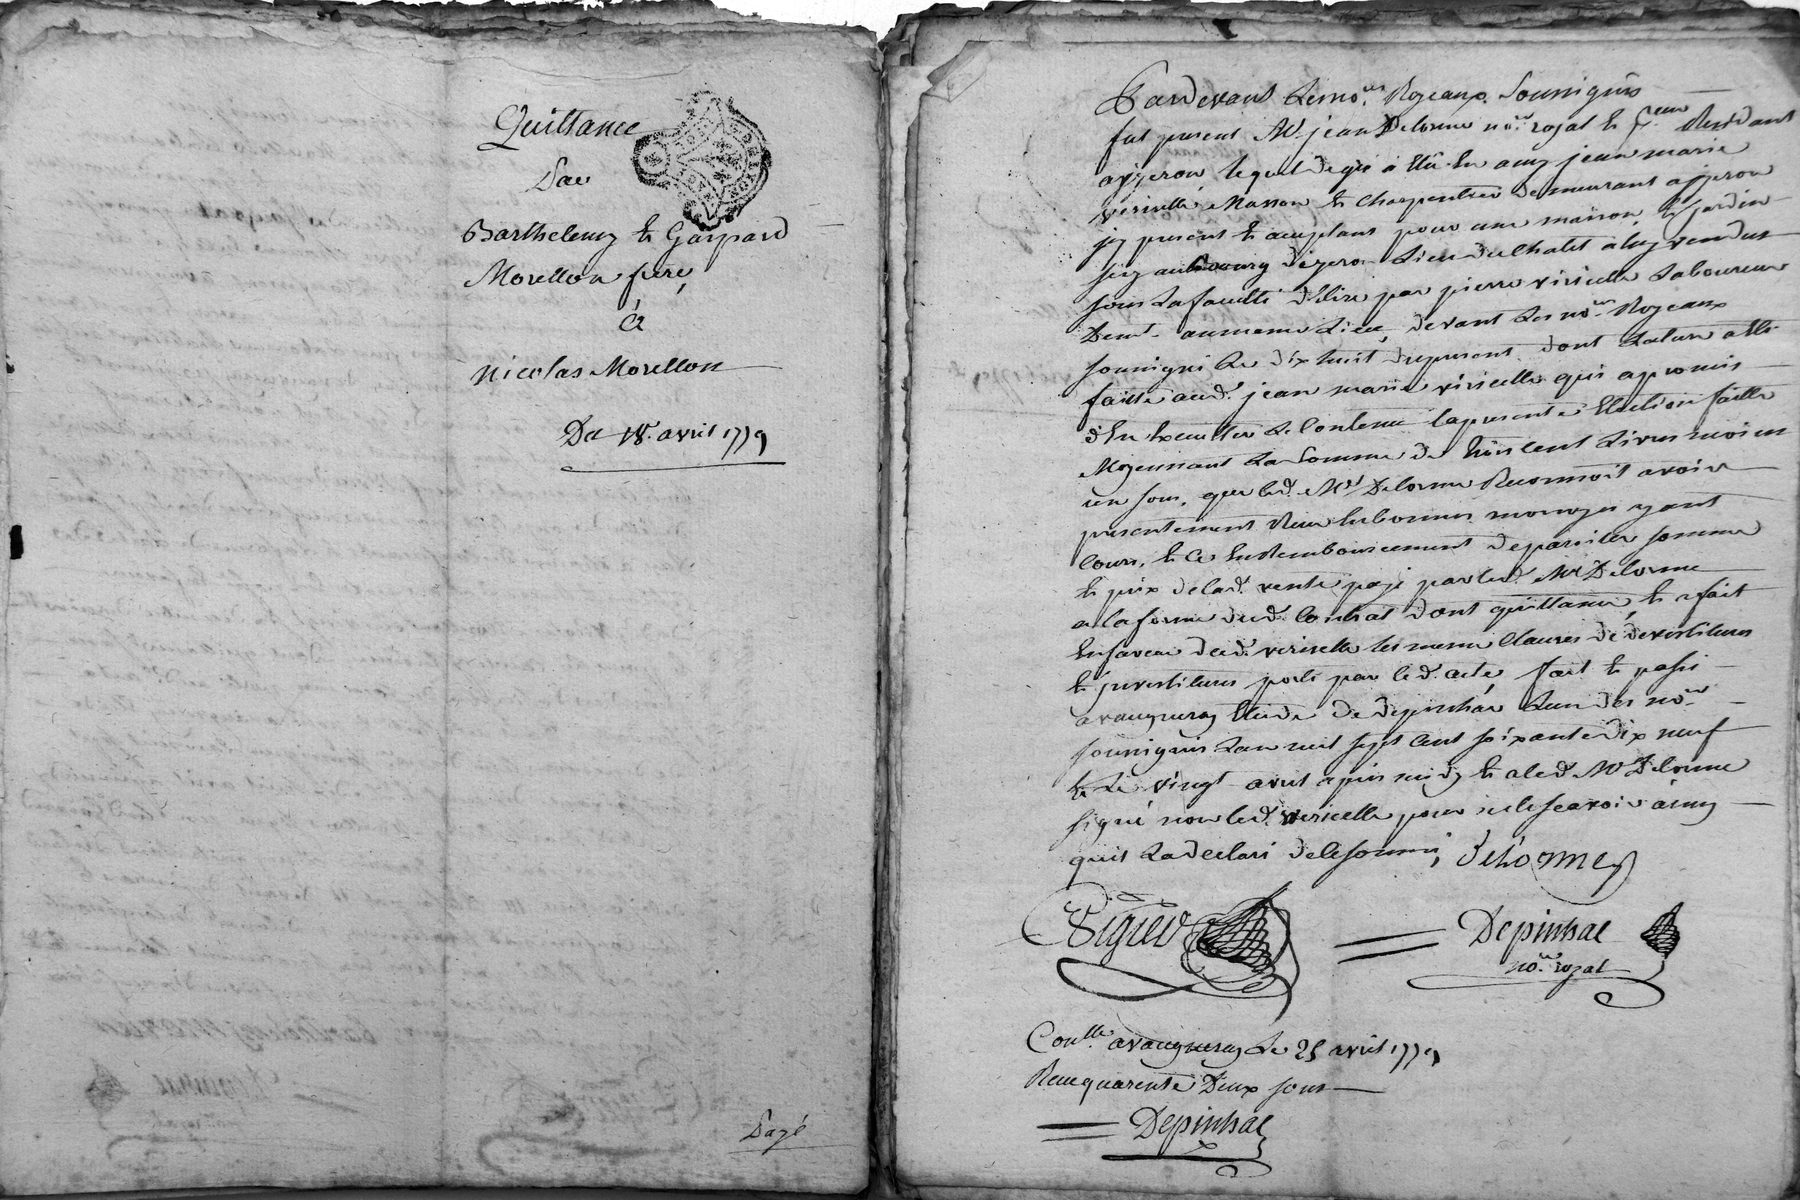 Quittance
Par
Barthelemy et Gaspard
Morellon frere
à
Nicolas Morellon
Du 18. avril 1779
Payé
Pardevant Les no.res Royaux soussignés
fut present Me jean Delorme no.re royal et Residant
ayzeron, lequel de gré à Elû En amy jean marie
viricelle Masson et Charpentier demeurant ayzeron
jcy present et aceptant pour une maison, et jardin
sis aubourg dizeron Lieu du Chalet a luy vendus
sous La faculté d'Elire par pierre viricelle Laboureur
Demt. aumeme Lieu, devant Les no.res Royeaux
soussigné Le dix huit du present dont Lecture a Eté
faitte aud. jean marie viricelle qui a promis
d'En Executer Le Contenu lapresente Election faitte
Moyennant La Somme de Cent Livres moins
un sous, que led. Me Delorme Reconnoit avoir
presentement Reçu En bonnes monoyes ayant
Cours, et Ce En Remboursement depareille somme
et prix delad. vente payé par led. Me Delorme
a la forme dud. Contrat dont quittance, et a fait
En faveur dud. viricelle les meme Clauses de devestitures
et jnvestitures porté par led. acte, fait et passé
avaugneray Etude de Depinhac Lun des no.res
soussignés Lan mil sept Cent soixante dix neuf
et Le vingt avril apres midy et a led. Me Delorme
signé non led. viricelle pour ne le scavoir ainsy
quil La declaré de ce sommé, Delorme
Depinhac
no.re royal
Conllé. avaugneray Le 25 avril 1779
Reçu quarente Deux sous
Depinhac